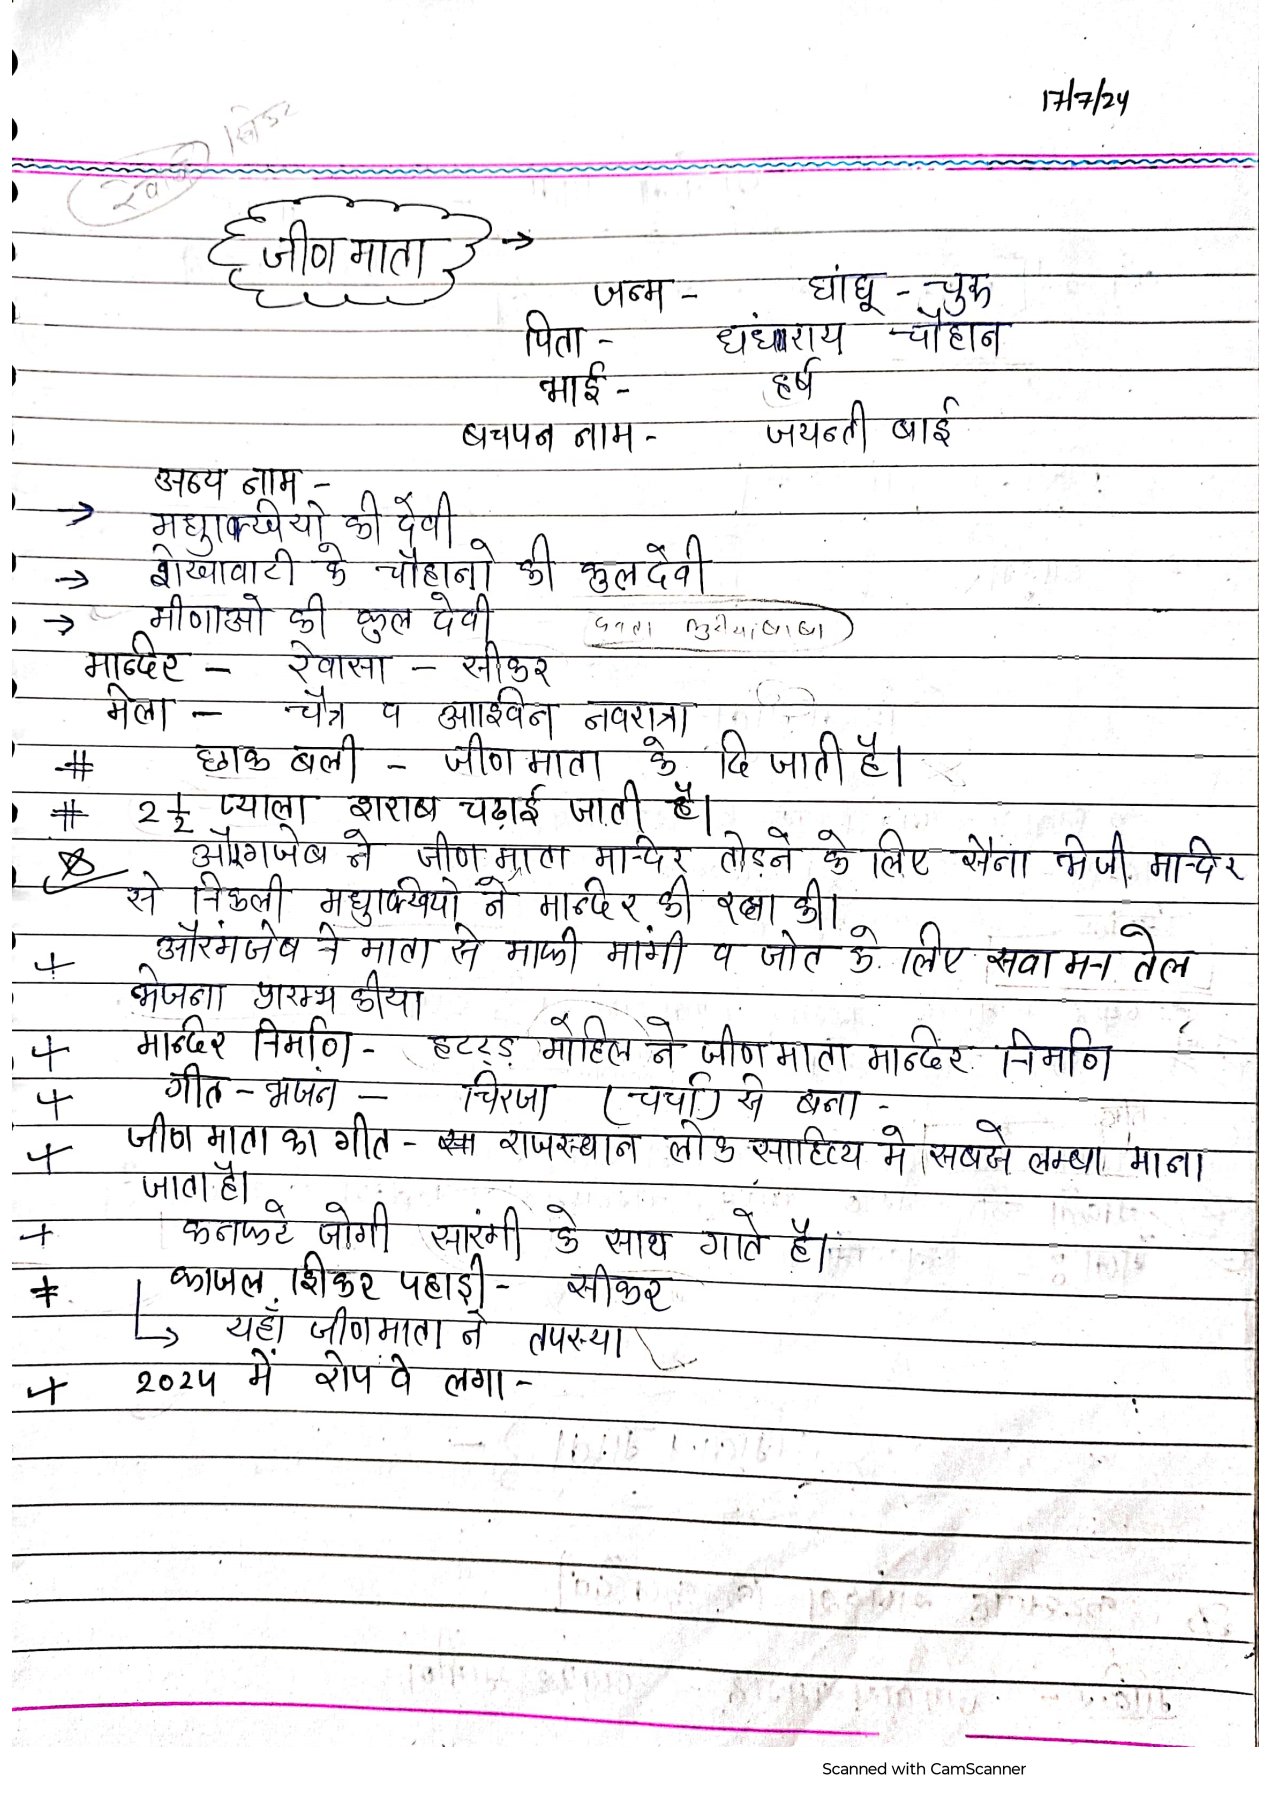 17/7/24
जीण माता →
जन्म - धांधू - चुरू
पिता - धंधाराय चौहान
भाई - हर्ष
बचपन नाम - जयन्ती बाई
अन्य नाम -
→ मधुमक्खियो की देवी
→ शेखावाटी के चौहानो की कुल देवी
→ मीणाओ की कुल देवी
मन्दिर - रेवासा - सीकर
मेला - चैत्र व आश्विन नवरात्रा
# छाक बली - जीण माता के दि जाती है।
# 2 1/2 प्याला शराब चढ़ाई जाती है।
औरंगजेब ने जीण माता मन्दिर तोड़ने के लिए सैना भेजी मन्दिर
से निकली मधुमक्खियो ने मन्दिर की रक्षा की।
+ औरंगजेब ने माता से माफी मांगी व जोत के लिए सवा मन तेल
भेजना प्रारम्भ कीया
+ मन्दिर निर्माण - हटट्ड़ मोहिल ने जीण माता मन्दिर निर्माण
+ गीत - भजन - चिरजा (चर्चा) से बना -
+ जीण माता का गीत - राजस्थान लोक साहित्य मे सबसे लम्बा माना
जाता है।
+ कनफटे जोगी सारंगी के साथ गाते है।
# काजल शिकर पहाड़ी - सीकर
↳ यहाँ जीण माता ने तपस्या
+ 2024 में रोप वे लगा -
Scanned with CamScanner